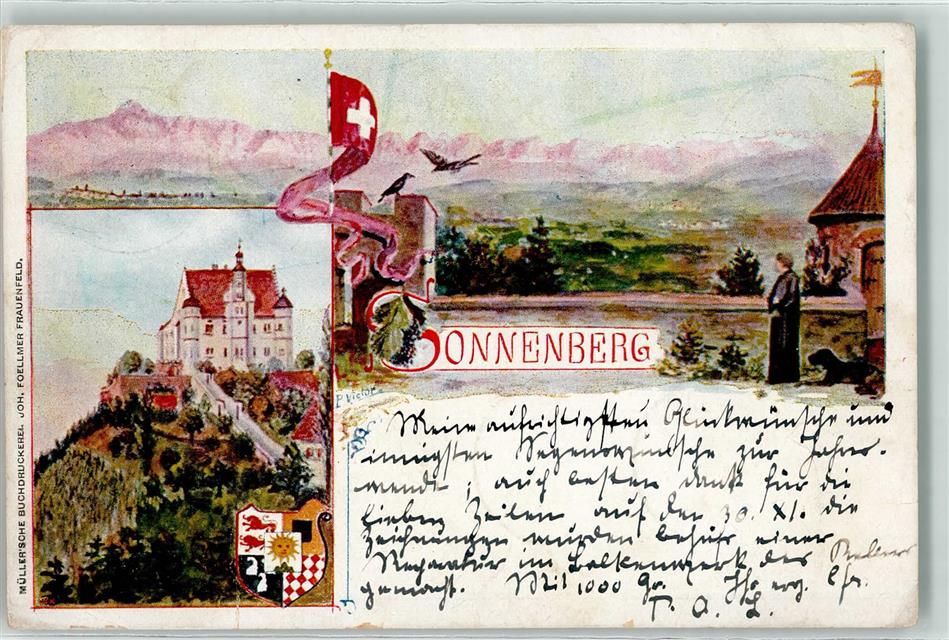 MÜLLER'SCHE BUCHDRUCKEREI. JOH. FOELLMER FRAUENFELD.
SONNENBERG
P. Victor
Meine aufrichtigsten Glückwünsche und
innigsten Segenswünsche zur Jahres-
wende; auch besten Dank für die
lieben Zeilen auf den 30. XI. die
Zeichnungen wurden behufs einer
Reparatur im Balkenwerk des
gemacht. Mit 1000 Gr. Ihr erg.
P. A. L.